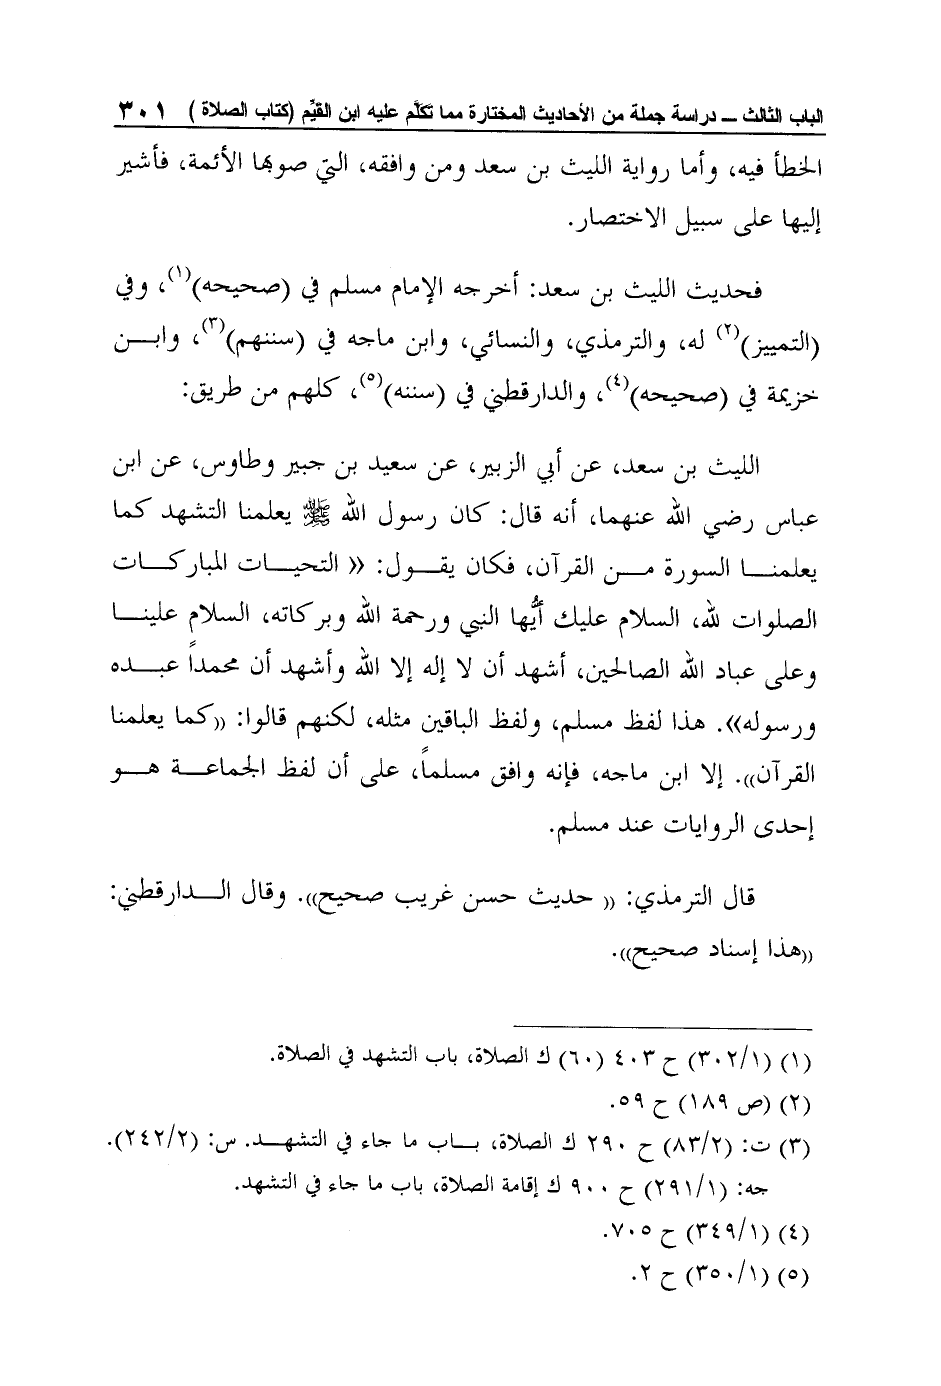 الباب الثالث ــ دراسة جملة من الأحاديث المختارة مما تكلَّم عليه ابن القيِّم (كتاب الصلاة ) ٣٠١
الخطأ فيه، وأما رواية الليث بن سعد ومن وافقه، التي صوبها الأئمة، فأشير
إليها على سبيل الاختصار.
فحديث الليث بن سعد: أخرجه الإمام مسلم في (صحيحه)(١)، وفي
(التمييز)(٢) له، والترمذي، والنسائي، وابن ماجه في (سننهم)(٣)، وابـــن
خزيمة في (صحيحه)(٤)، والدارقطني في (سننه)(٥)، كلهم من طريق:
الليث بن سعد، عن أبي الزبير، عن سعيد بن جبير وطاوس، عن ابن
عباس رضي الله عنهما، أنه قال: كان رسول الله ﷺ يعلمنا التشهد كما
يعلمنـــا السورة مـــن القرآن، فكان يقـــول: « التحيـــات المباركـــات
الصلوات لله، السلام عليك أيُّها النبي ورحمة الله وبركاته، السلام علينـــا
وعلى عباد الله الصالحين، أشهد أن لا إله إلا الله وأشهد أن محمداً عبـــده
ورسوله». هذا لفظ مسلم، ولفظ الباقين مثله، لكنهم قالوا: ((كما يعلمنا
القرآن)). إلا ابن ماجه، فإنه وافق مسلماً، على أن لفظ الجماعـــة هـــو
إحدى الروايات عند مسلم.
قال الترمذي: (( حديث حسن غريب صحيح)). وقال الـــدارقطني:
((هذا إسناد صحيح)).
(١) (٣٠٢/١) ح ٤٠٣ (٦٠) ك الصلاة، باب التشهد في الصلاة.
(٢) (ص ١٨٩) ح ٥٩.
(٣) ت: (٨٣/٢) ح ٢٩٠ ك الصلاة، بـــاب ما جاء في التشهـــد. س: (٢٤٢/٢).
جه: (٢٩١/١) ح ٩٠٠ ك إقامة الصلاة، باب ما جاء في التشهد.
(٤) (٣٤٩/١) ح ٧٠٥.
(٥) (٣٥٠/١) ح ٢.